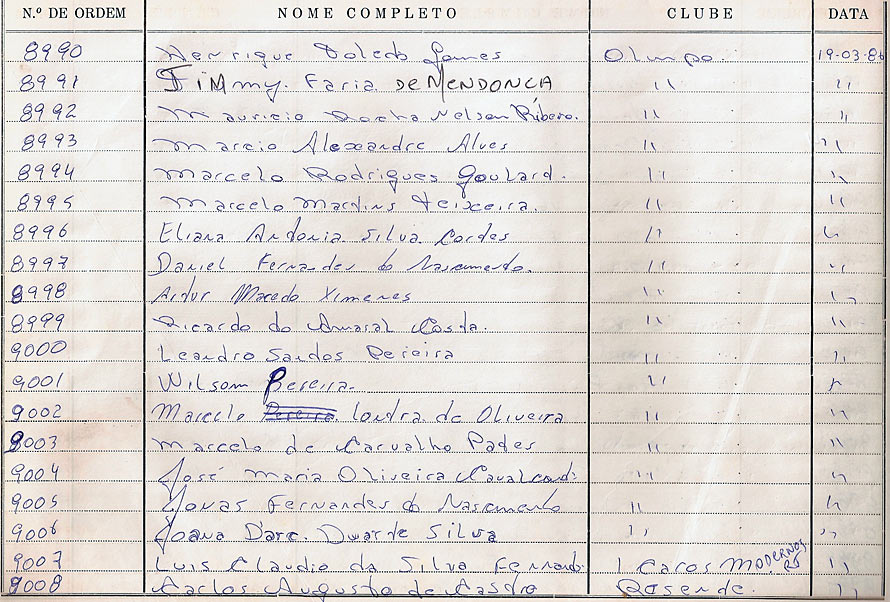 N.º DE ORDEM NOME COMPLETO CLUBE DATA
8990 Henrique Toledo Gomes Olimpo 19-03-86
8991 JiMmy. Faria DE MENDONCA " "
8992 Mauricio Rocha Nelson Ribeiro. " "
8993 Marcio Alexandre Alves " "
8994 Marcelo Rodrigues Goulard. " "
8995 Marcelo Martins Teixeira. " "
8996 Eliana Antonia Silva Cortes " "
8997 Daniel Fernandes do Nascimento. " "
8998 Artur Macedo Ximenes " "
8999 Ricardo do Amaral Costa. " "
9000 Leandro Santos Pereira " "
9001 Wilsom Pereira. " "
9002 Marcelo Pereira Loutra de Oliveira " "
9003 Marcelo de Carvalho Pates " "
9004 José Maria Oliveira Cavalcanti " "
9005 Jonas Fernandes do Nascimento " "
9006 Joana D'arc. Duarte Silva " "
9007 Luis Claudio da Silva Fernand. Icaros MODERNOS RJ "
9008 Carlos Augusto de Castro Resende. "